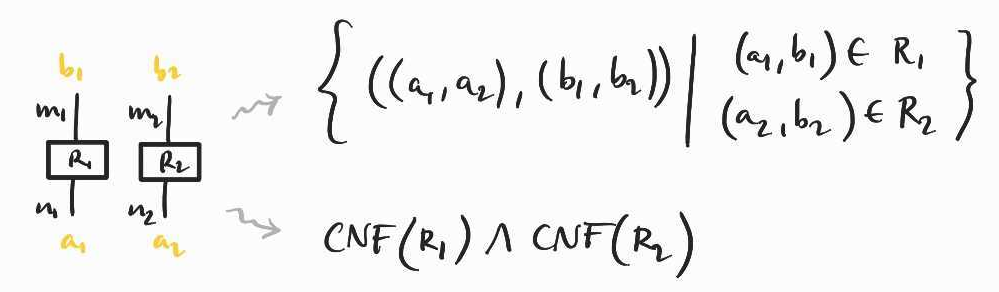 b₁ b₂
m₁ m₂
R₁ R₂
n₁ n₂
a₁ a₂
{ ((a₁,a₂),(b₁,b₂)) | (a₁,b₁) ∈ R₁
(a₂,b₂) ∈ R₂ }
CNF(R₁) ∧ CNF(R₂)